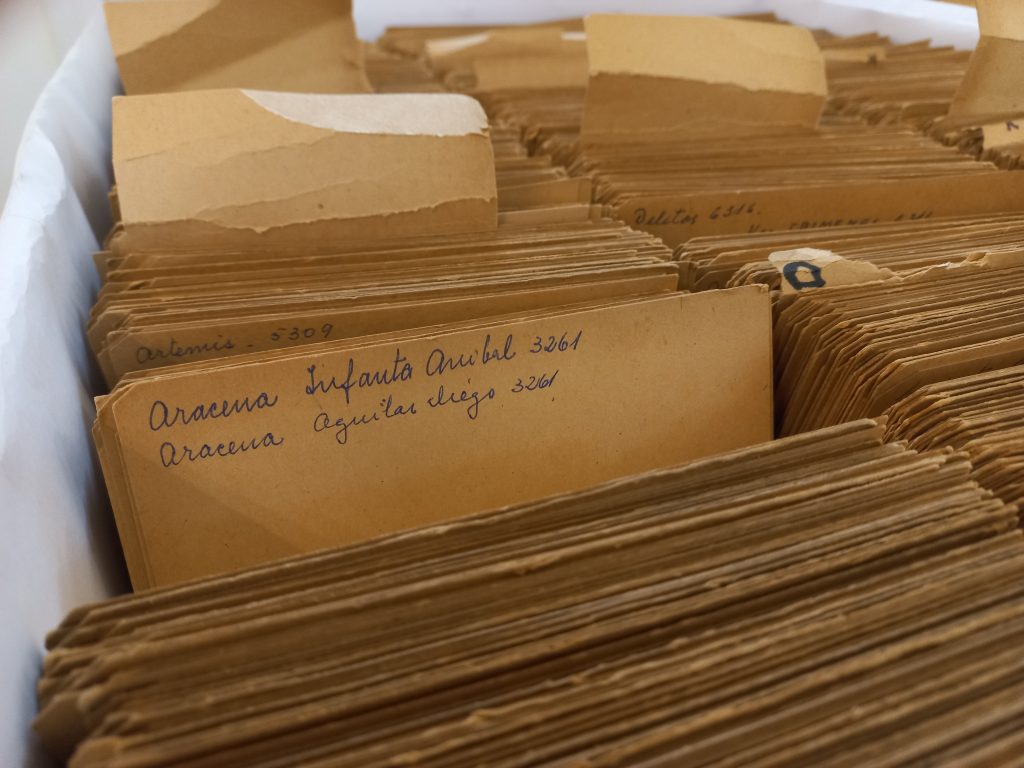 Delitos 6316.
D
Artemis - 5309
Aracena Infanta Anibal 3261
Aracena Aguilar diégo 3261.